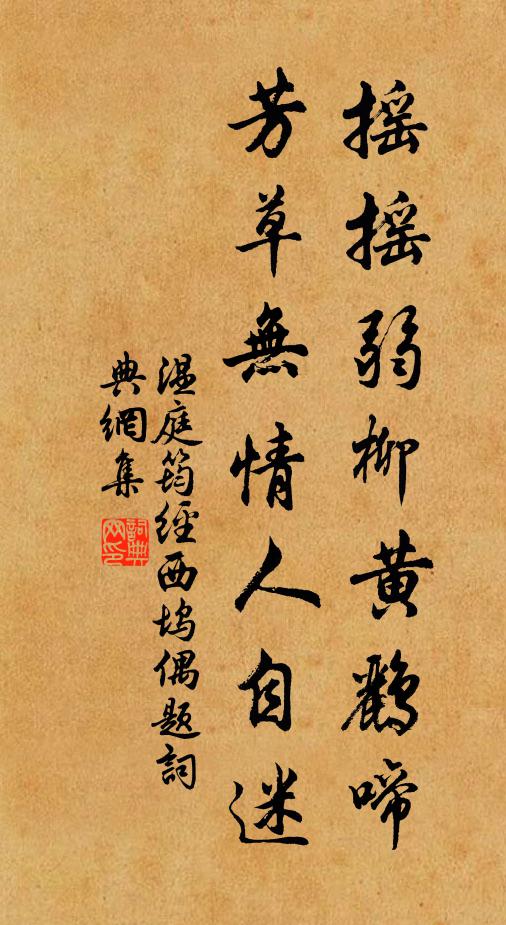 搖搖弱柳黃鸝啼
芳草無情人自迷
溫庭筠經西塢偶題詞
典網集
詞典網印